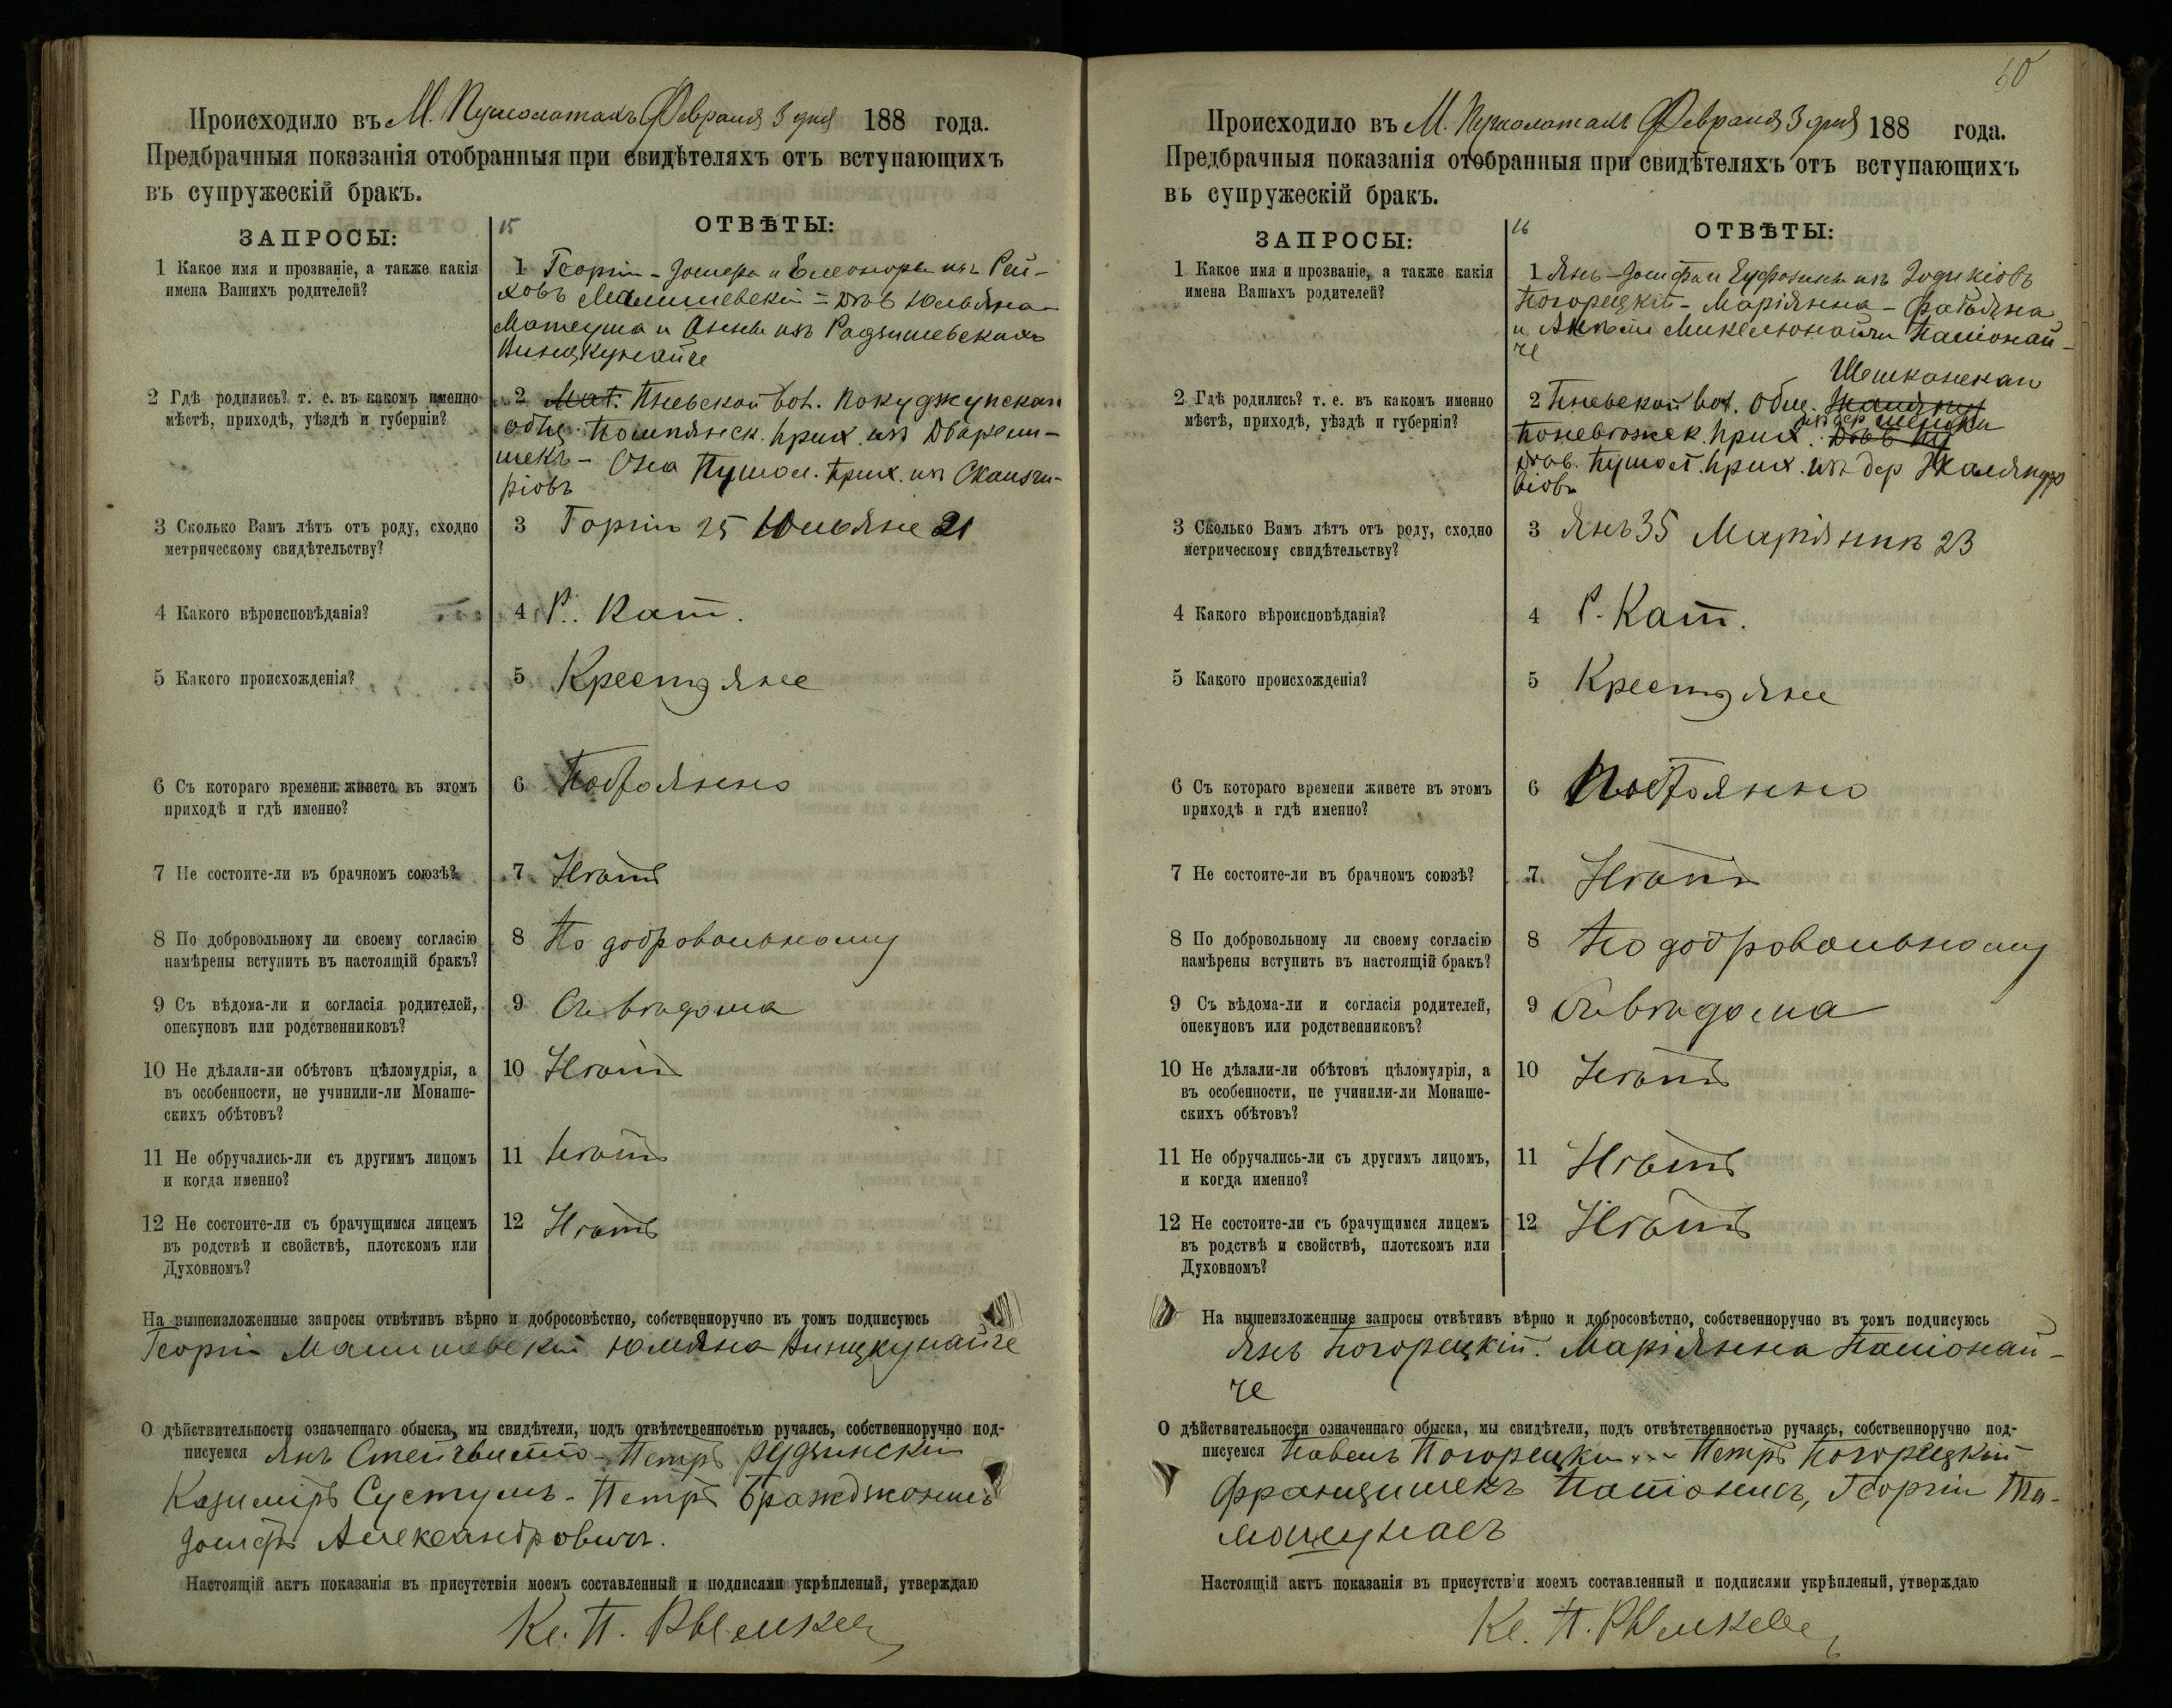 Происходило въ М. Пушолатахъ Февраля 3 дня 188 года.
Предбрачныя показанія отобранныя при свидѣтеляхъ отъ вступающихъ
въ супружескій бракъ.
ЗАПРОСЫ:
15 ОТВѢТЫ:
1 Какое имя и прозваніе, а также какія
имена Вашихъ родителей?
1 Георгій - Іосифа и Елеоноры изъ Рей-
ховъ Малишевскій = Юльяна
Матеуша и Анны изъ Радзишевскихъ
Винцкунайте
2 Гдѣ родились? т. е. въ какомъ именно
мѣстѣ, приходѣ, уѣздѣ и губерніи?
2 Пневской вол.
общ. Помпянск. прих. изъ Двареми-
шекъ - Она Пушол. прих. изъ
ріовъ
3 Сколько Вамъ лѣтъ отъ роду, сходно
метрическому свидѣтельству?
3 Горгій 25 Юльяне 21
4 Какого вѣроисповѣданія?
4 Р. Кат.
5 Какого происхожденія?
5 Крестяне
6 Съ котораго времени живете въ этомъ
приходѣ и гдѣ именно?
6 Постоянно
7 Не состоите-ли въ брачномъ союзѣ?
7 Нѣтъ
8 По добровольному ли своему согласію
намѣрены вступить въ настоящій бракъ?
8 По добровольному
9 Съ вѣдома-ли и согласія родителей,
опекуновъ или родственниковъ?
9 Съ вѣдома
10 Не дѣлали-ли обѣтовъ цѣломудрія, а
въ особенности, не учинили-ли Монаше-
скихъ обѣтовъ?
10 Нѣтъ
11 Не обручались-ли съ другимъ лицомъ
и когда именно?
11 Нѣтъ
12 Не состоите-ли съ брачущимся лицемъ
въ родствѣ и свойствѣ, плотскомъ или
Духовномъ?
12 Нѣтъ
На вышеизложенные запросы отвѣтивъ вѣрно и добросовѣстно, собственноручно въ томъ подписуюсь
Георгій Малишевскій Юльяна Винцкунайте
О дѣйствительности означеннаго обыска, мы свидѣтели, подъ отвѣтственностью ручаясь, собственноручно под-
писуемся Янъ - Петръ Рудзинскій
Казиміръ Сустумъ - Петръ Бражджонисъ
Іосифъ Александровичъ.
Настоящій актъ показанія въ присутствіи моемъ составленный и подписями укрѣпленый, утверждаю
Кс. П.
50
Происходило въ М. Пушолатахъ Февраля 3 дня 188 года.
Предбрачныя показанія отобранныя при свидѣтеляхъ отъ вступающихъ
въ супружескій бракъ.
ЗАПРОСЫ:
16 ОТВѢТЫ:
1 Какое имя и прозваніе, а также какія
имена Вашихъ родителей?
1 Янъ - Іосифа и Еуфозины изъ
Погорецкій - Маріянна - Фабіяна
и Анели Микелюнайти Паціонай-
че
2 Гдѣ родились? т. е. въ какомъ именно
мѣстѣ, приходѣ, уѣздѣ и губерніи?
2 Пневской вол. общ.
Поневѣжск. прих. изъ дер
Пушол. прих. изъ дер
віовъ
3 Сколько Вамъ лѣтъ отъ роду, сходно
метрическому свидѣтельству?
3 Янъ 35 Маріяннѣ 23
4 Какого вѣроисповѣданія?
4 Р. Кат.
5 Какого происхожденія?
5 Крестяне
6 Съ котораго времени живете въ этомъ
приходѣ и гдѣ именно?
6 Постоянно
7 Не состоите-ли въ брачномъ союзѣ?
7 Нѣтъ
8 По добровольному ли своему согласію
намѣрены вступить въ настоящій бракъ?
8 По добровольному
9 Съ вѣдома-ли и согласія родителей,
опекуновъ или родственниковъ?
9 Съ вѣдома
10 Не дѣлали-ли обѣтовъ цѣломудрія, а
въ особенности, не учинили-ли Монаше-
скихъ обѣтовъ?
10 Нѣтъ
11 Не обручались-ли съ другимъ лицомъ,
и когда именно?
11 Нѣтъ
12 Не состоите-ли съ брачущимся лицемъ
въ родствѣ и свойствѣ, плотскомъ или
Духовномъ?
12 Нѣтъ
На вышеизложенные запросы отвѣтивъ вѣрно и добросовѣстно, собственноручно въ томъ подписуюсь
Янъ Погорецкій. Маріянна Паціонай-
че
О дѣйствительности означеннаго обыска, мы свидѣтели, подъ отвѣтственностью ручаясь, собственноручно под-
писуемся Павелъ Погорецкій - Петръ Погорецкій
Францишекъ Паціонисъ, Георгій Та-
мошунасъ
Настоящій актъ показанія въ присутствіи моемъ составленный и подписями укрѣпленый, утверждаю
Кс. П.